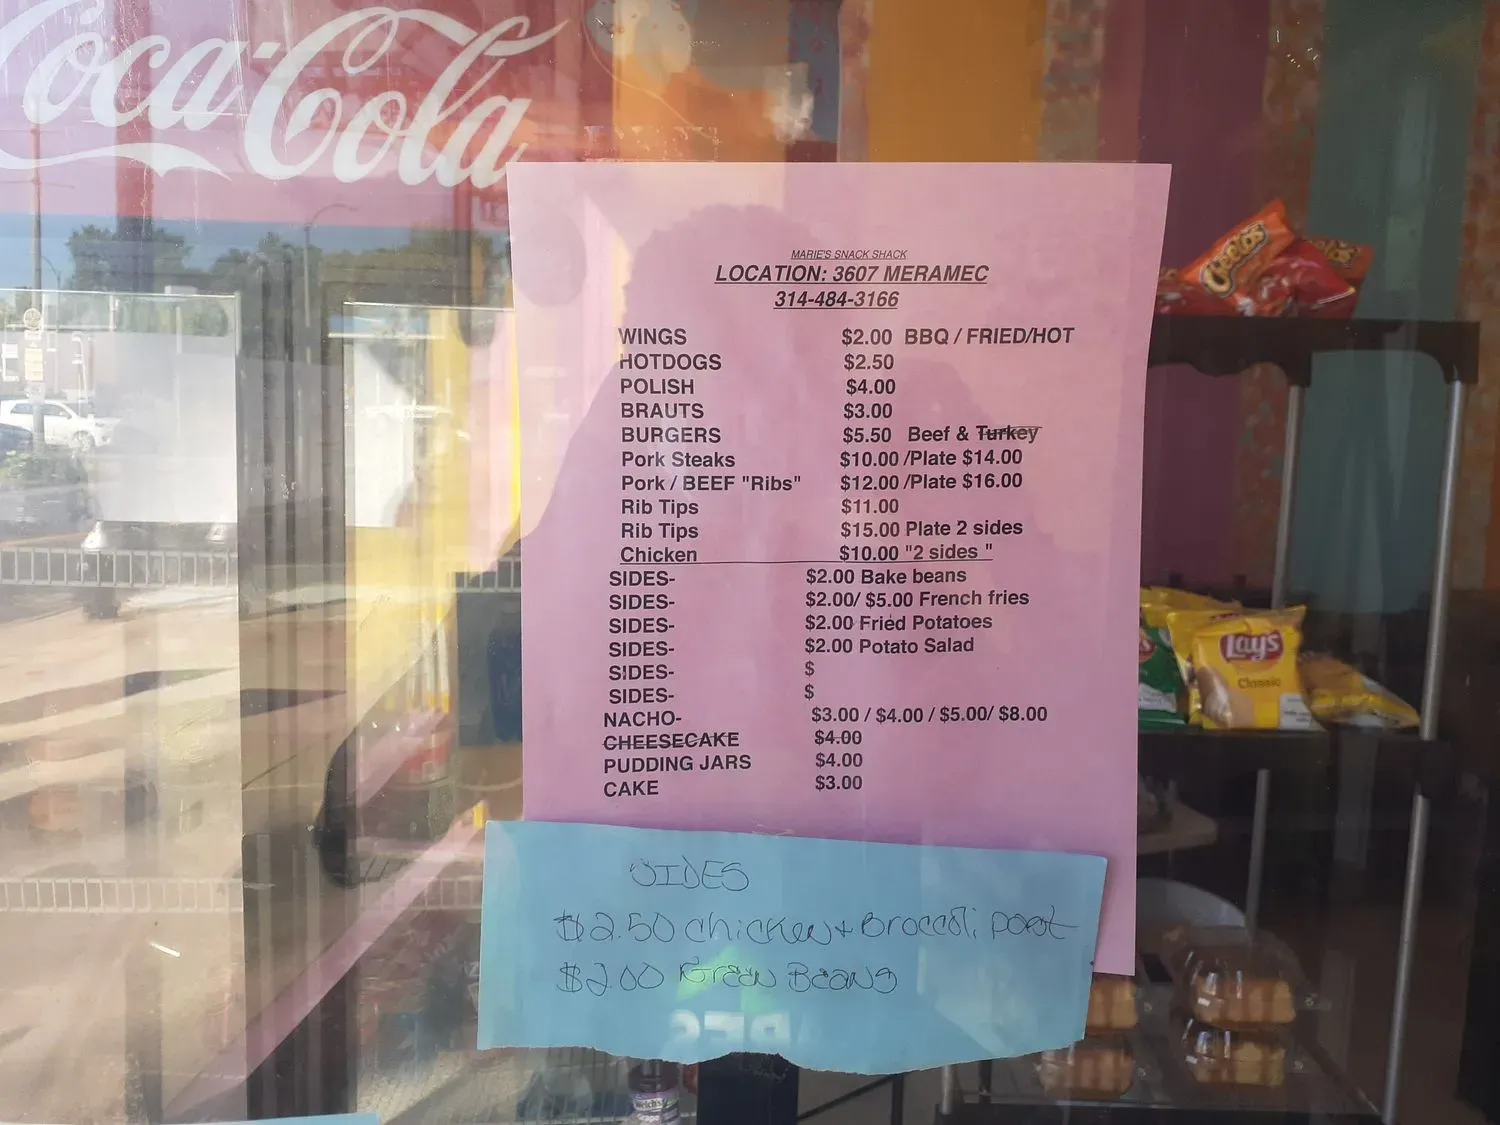 Coca-Cola
MARIE'S SNACK SHACK
LOCATION: 3607 MERAMEC
314-484-3166
WINGS $2.00 BBQ / FRIED/HOT
HOTDOGS $2.50
POLISH $4.00
BRAUTS $3.00
BURGERS $5.50 Beef & Turkey
Pork Steaks $10.00 /Plate $14.00
Pork / BEEF "Ribs" $12.00 /Plate $16.00
Rib Tips $11.00
Rib Tips $15.00 Plate 2 sides
Chicken $10.00 "2 sides "
SIDES- $2.00 Bake beans
SIDES- $2.00/ $5.00 French fries
SIDES- $2.00 Fried Potatoes
SIDES- $2.00 Potato Salad
SIDES- $
SIDES- $
NACHO- $3.00 / $4.00 / $5.00/ $8.00
CHEESECAKE $4.00
PUDDING JARS $4.00
CAKE $3.00
SIDES
$2.50 chicken + Broccoli past
$2.00 Green Beans
Cheetos
Lay's
Classic
Welch's
Grape